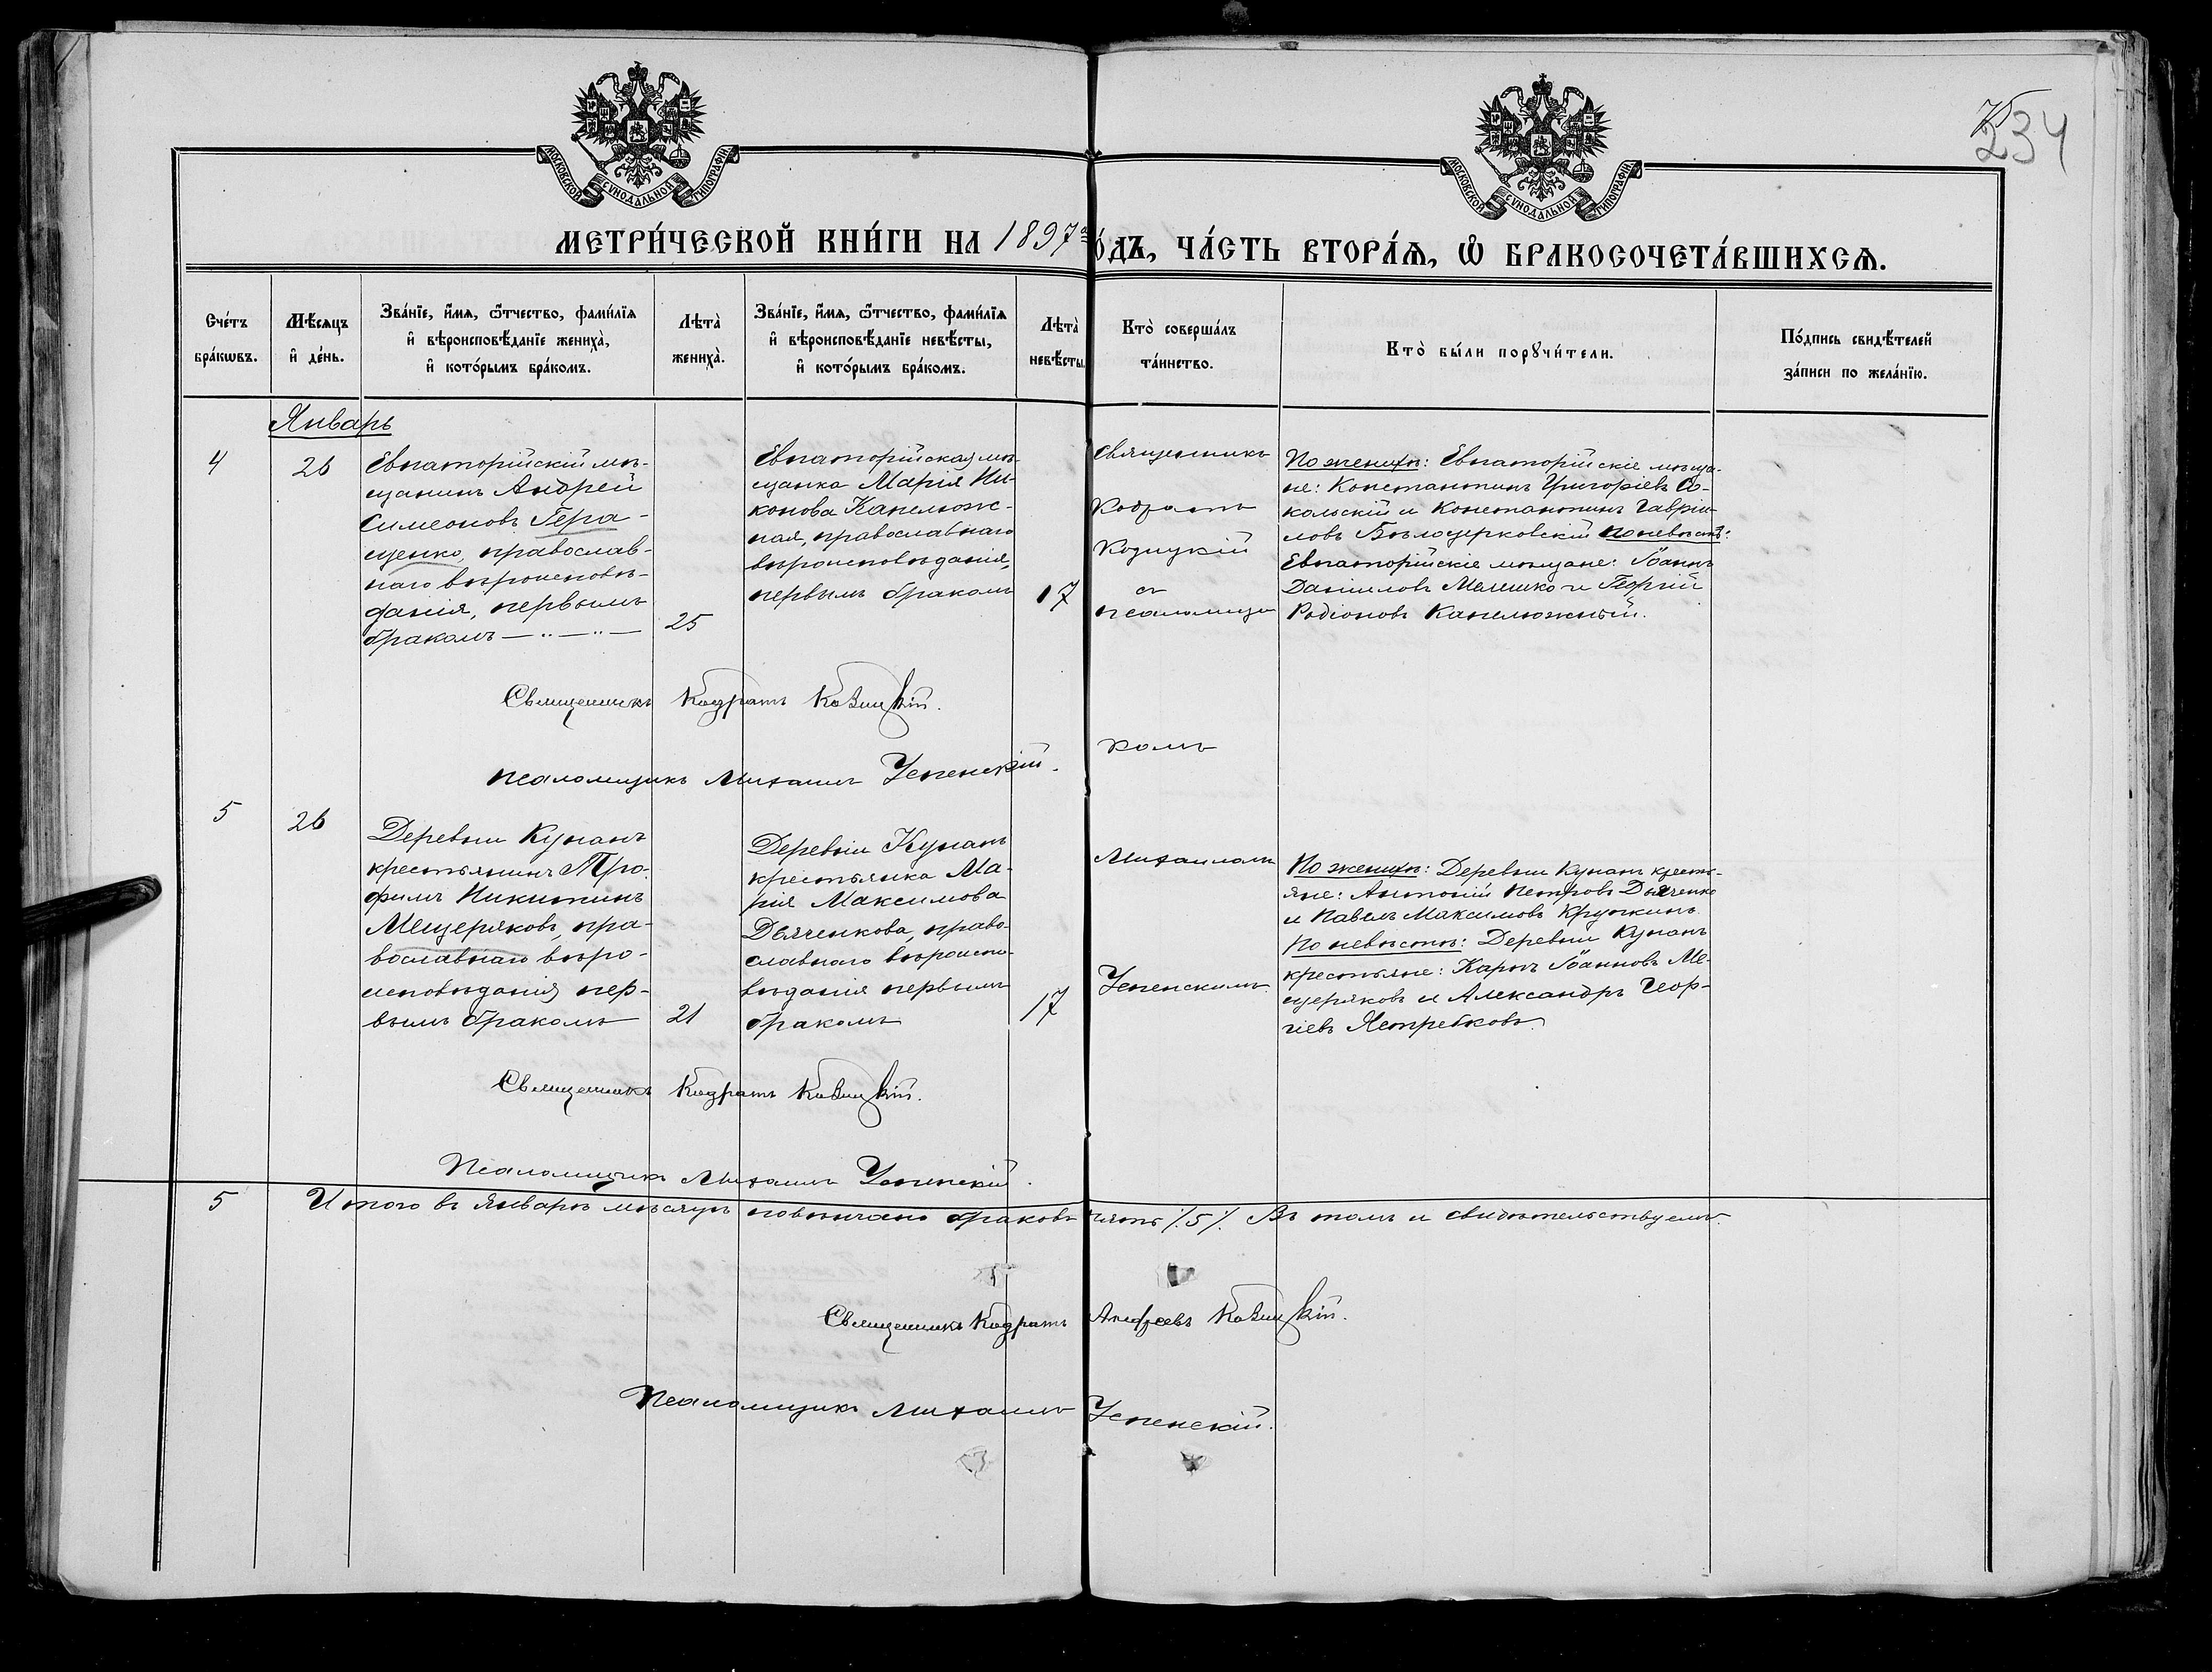 234
МОСКОВСКОЙ СѴНОДАЛЬНОЙ ТИПОГРАФІИ
МОСКОВСКОЙ СѴНОДАЛЬНОЙ ТИПОГРАФІИ
МЕТРИ́ЧЕСКОЙ КНИ́ГИ НА 1897 го́дъ, ЧА́СТЬ ВТОРА́Ѧ, Ѿ БРАКОСОЧЕТА́ВШИХСѦ.
Сче́тъ бра́кѡвъ.
Мѣ́сѧцъ и҆ де́нь.
Зва́нїе, и҆́мѧ, ѻ҆́тчество, фами́лїѧ
и҆ вѣроисповѣ́данїе жениха̀,
и҆ кото́рымъ бра́комъ.
Лѣта̀ жениха̀.
Зва́нїе, и҆́мѧ, ѻ҆́тчество, фами́лїѧ
и҆ вѣроисповѣ́данїе невѣ́сты,
и҆ кото́рымъ бра́комъ.
Лѣта̀ невѣ́сты.
Кто̀ соверша́лъ та́инство.
Кто̀ бы́ли порꙋчи́тели.
По́дпись свидѣ́телей
за́писи по жела́нїю.
Январь
4
26
Евпаторійскій мѣ-
щанинъ Андрей
Симеоновъ Гера-
щенко, православ-
наго вѣроисповѣ-
данія, первымъ
бракомъ
25
Евпаторійская мѣ-
щанка Марія Ни-
конова Капелюж-
ная, православнаго
вѣроисповѣданія,
первымъ бракомъ
17
Священникъ
Кодратъ
Козицкій
съ
псаломщи
комъ
По женихѣ: Евпаторійскіе мѣща-
не: Константинъ Григоріевъ Со-
кольскій и Константинъ Гаврии-
ловъ Бѣлоцерковскій по невѣстѣ:
Евпаторійскіе мѣщане: Іоаннъ
Даниловъ Мелешко и Георгій
Родіоновъ Капелюжный.
Священникъ Кодратъ Козицкій.
Псаломщикъ Михаилъ Успенскій.
5
26
Деревни Кунанъ
крестьянинъ Тро-
фимъ Никитинъ
Мещеряковъ, пра-
вославнаго вѣро-
исповѣданія пер-
вымъ бракомъ
21
Деревни Кунанъ
крестьянка Ма-
рія Максимова
Дьяченкова, право-
славнаго вѣроиспо-
вѣданія первымъ
бракомъ
17
Михаиломъ
Успенскимъ
По женихѣ: Деревни Кунанъ кресть-
яне: Антоній Петровъ Дьяченко
и Павелъ Максимовъ Кружкинъ
По невѣстѣ: Деревни Кунанъ
крестьяне: Карпъ Іоанновъ Ме-
щеряковъ и Александръ Геор-
гіевъ Ястребковъ.
Священникъ Кодратъ Козицкій.
Псаломщикъ Михаилъ Успенскій.
5
Итого въ Январѣ мѣсяцѣ повѣнчано браковъ пять /.5/. Въ томъ и свидѣтельствуемъ.
Священникъ Кодратъ Андреевъ Козицкій.
Псаломщикъ Михаилъ Успенскій.